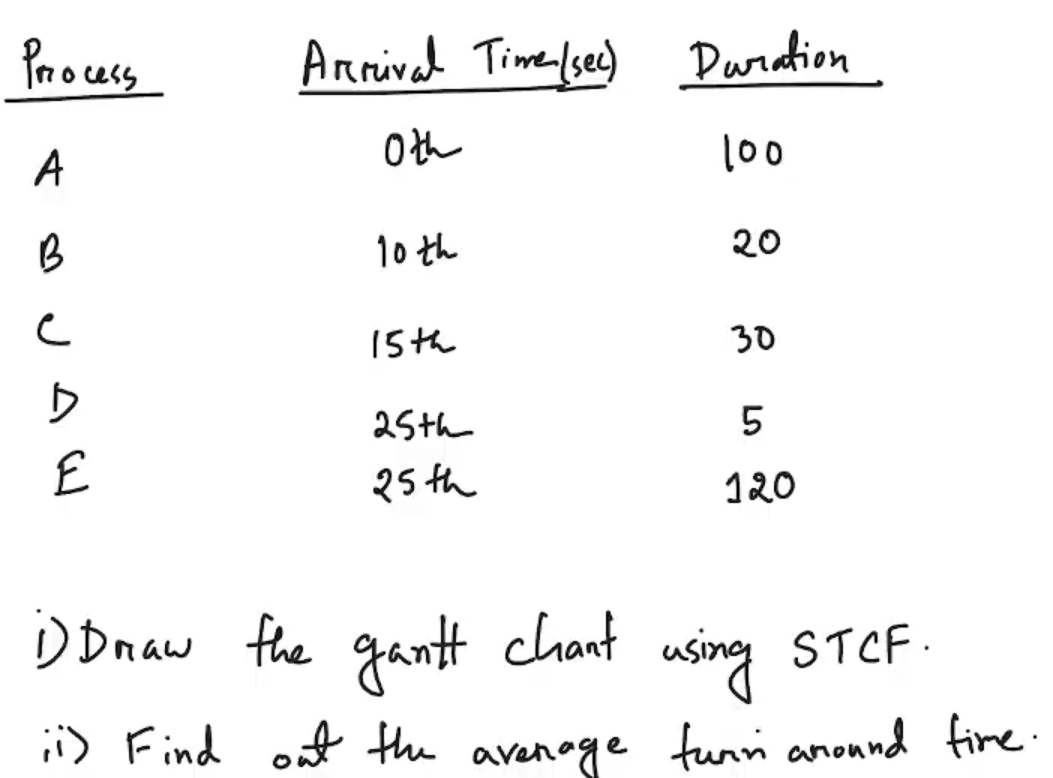 Process Arrival Time(sec) Duration
A 0th 100
B 10th 20
C 15th 30
D 25th 5
E 25th 120
i) Draw the gantt chart using STCF.
ii) Find out the average turn around time.